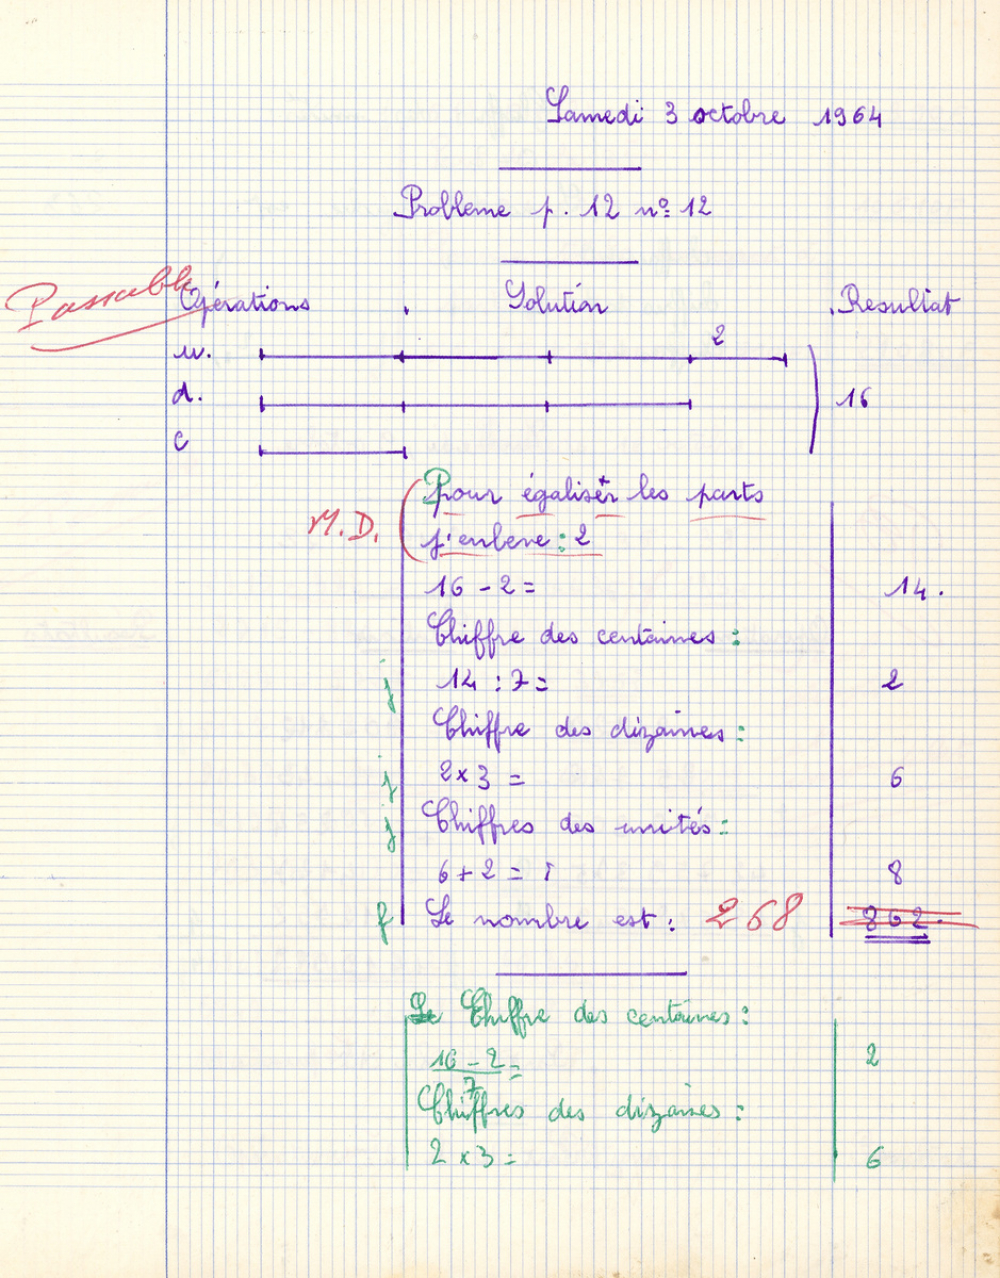 Samedi 3 octobre 1964
Probleme p. 12 nº 12
Passable
Opérations . Solution . Resultat
u. 2
d. 16
c
Pour égaliser les parts
M.D. j'enleve : 2
16 - 2 = 14.
Chiffre des centaines :
j 14 : 7 = 2
Chiffre des dizaines :
j 2 x 3 = 6
j Chiffres des unités :
6 + 2 = 8
f Le nombre est : 268 862.
Le Chiffre des centaines :
16 - 2 = 2
7
Chiffres des dizaines :
2 x 3 = 6